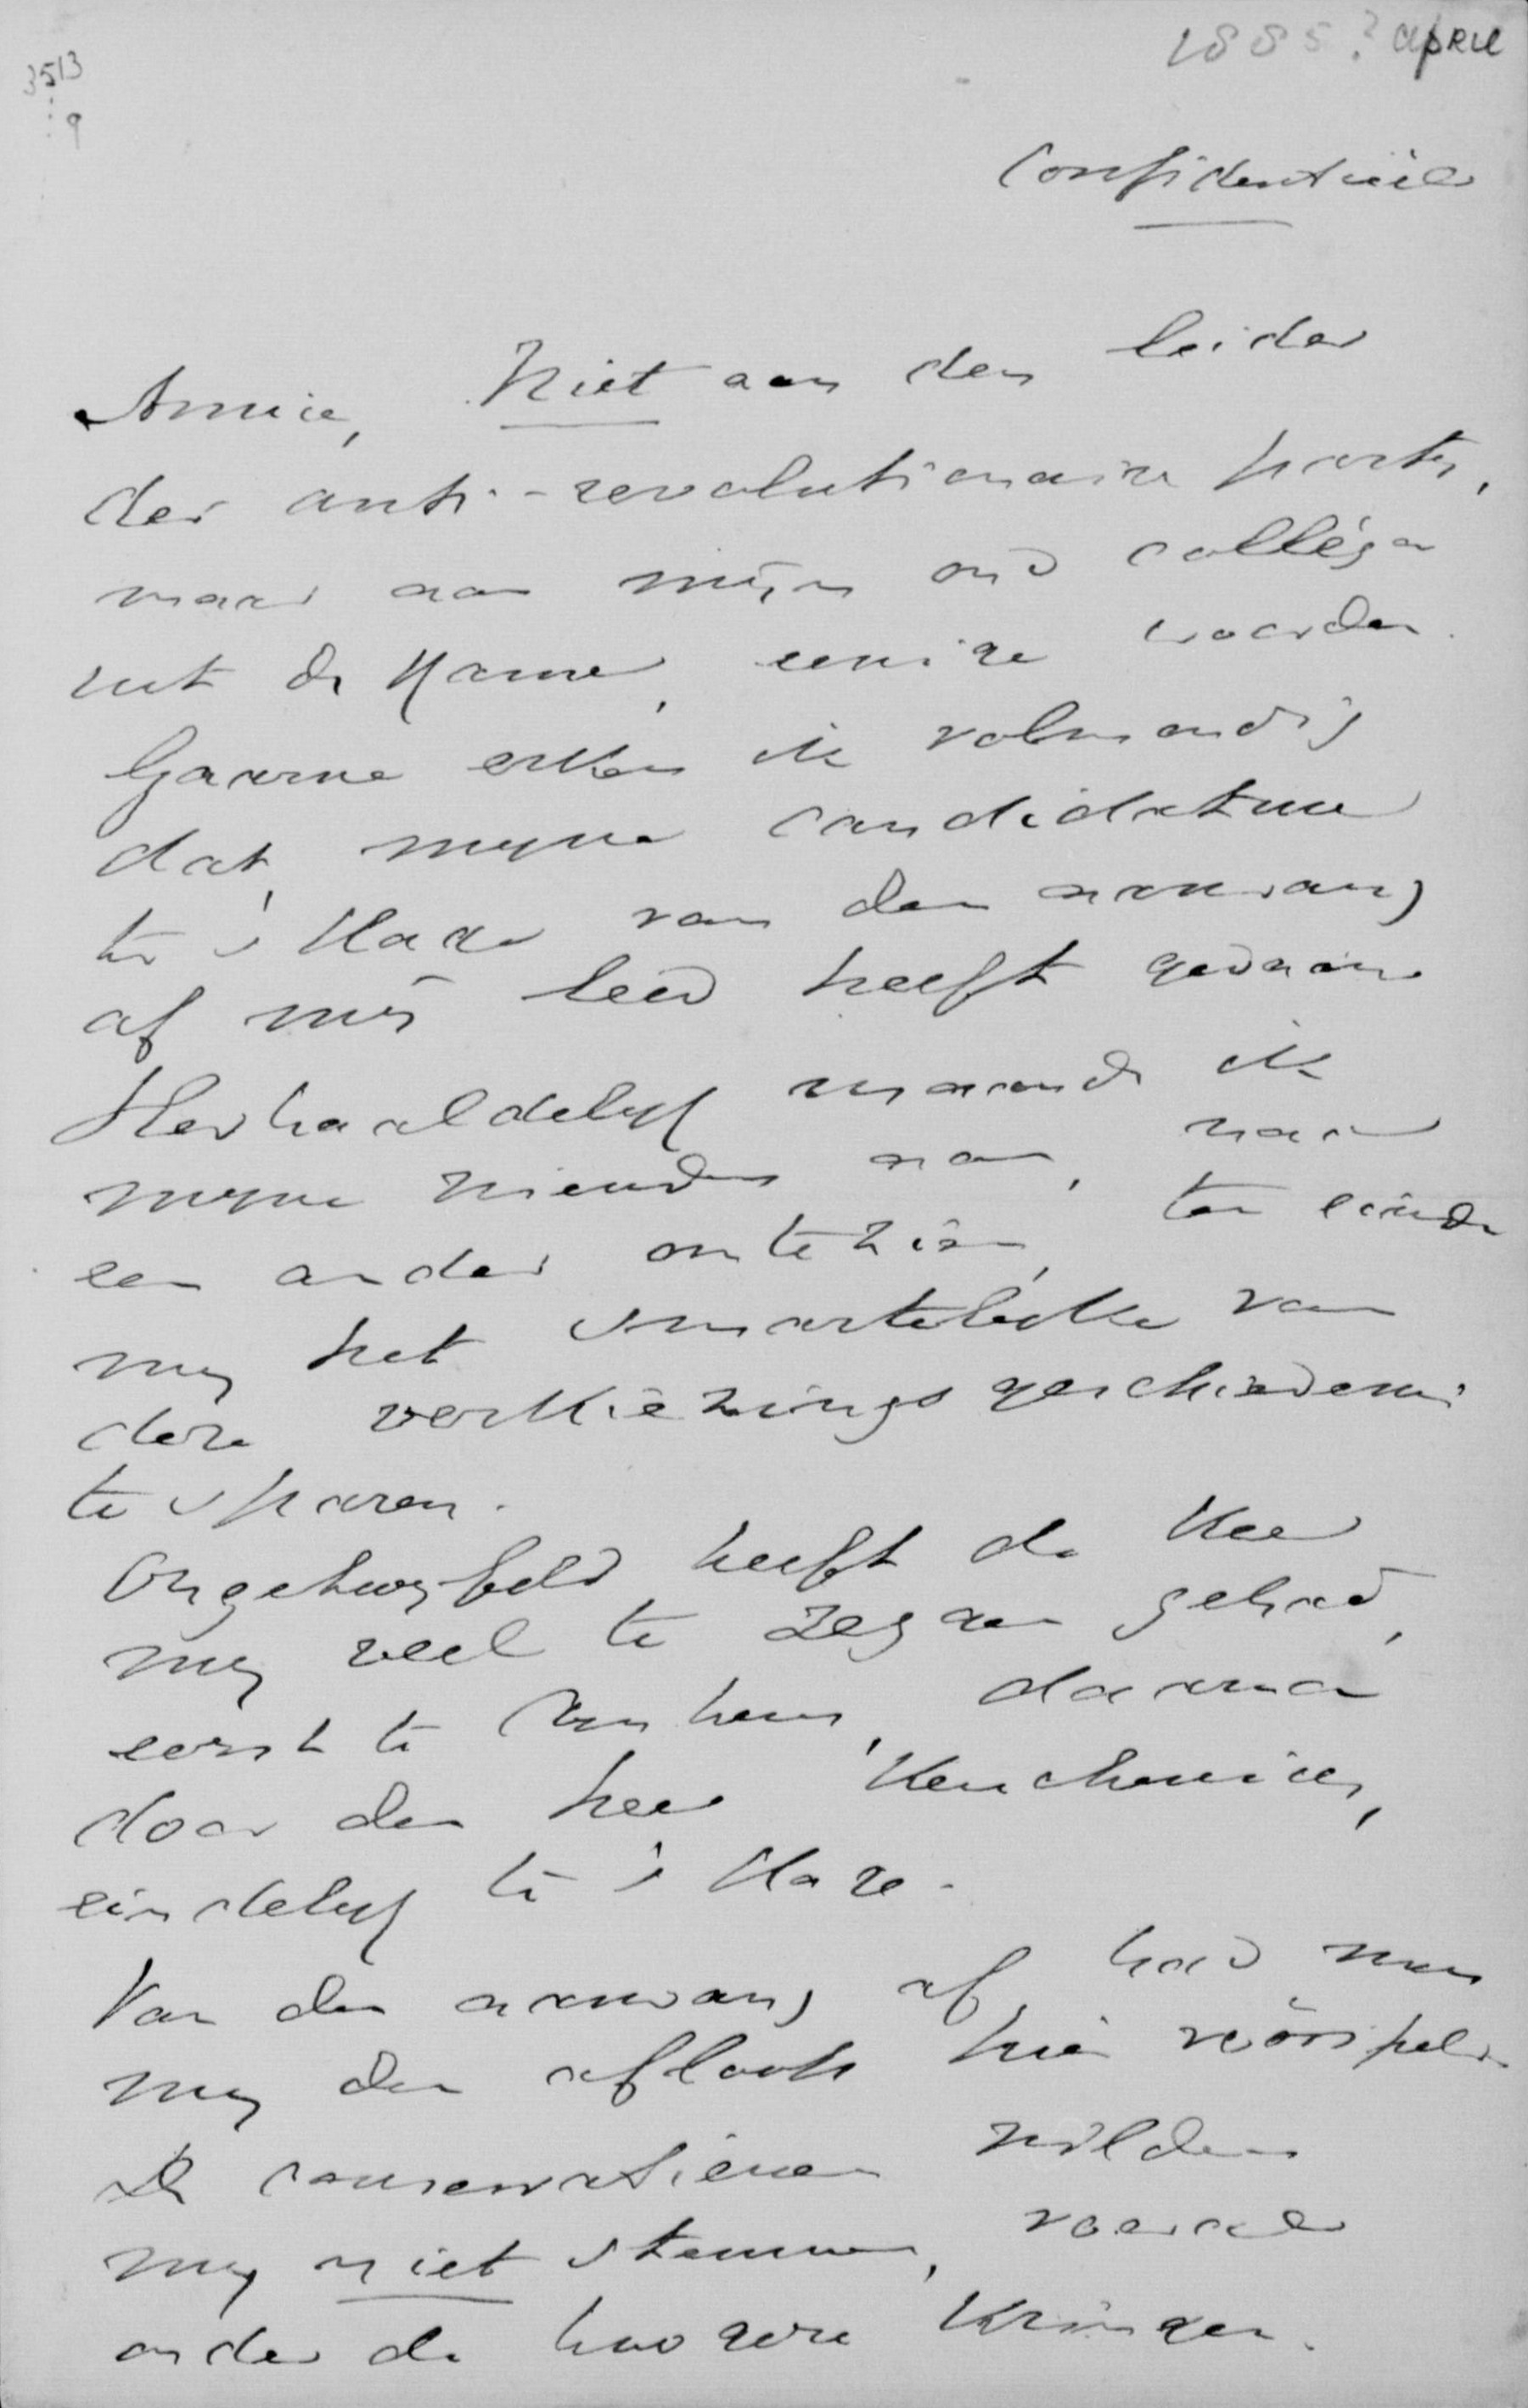 1885? april
3513
9
Confidentieel
Amice, Niet aan den leider
der anti-revolutionaire party,
maar aan mijn oud colléga
uit de Kamer, eenige woorden.
Gaarne erken ik volmondig
dat myne candidatuur
te 's Hage van den aanvang
af mij leed heeft gedaan
Herhaaldelyk maande ik
myne vrienden aan, naar
een ander omtezien, ten einde
my het smartelijke van
deze verkiezingsgeschiedenis
te sparen.
Ongetwyfeld heeft de Heer
my veel te zeggen gehad,
eerst te Arnhem, daarna
door den heer Keuchenius,
eindelyk te 's Hage.
Van den aanvang af had men
my den afloop hier voorspeld.
De conservatieven wilden
my niet stemmen, vooral
onder de hoogere kringen.